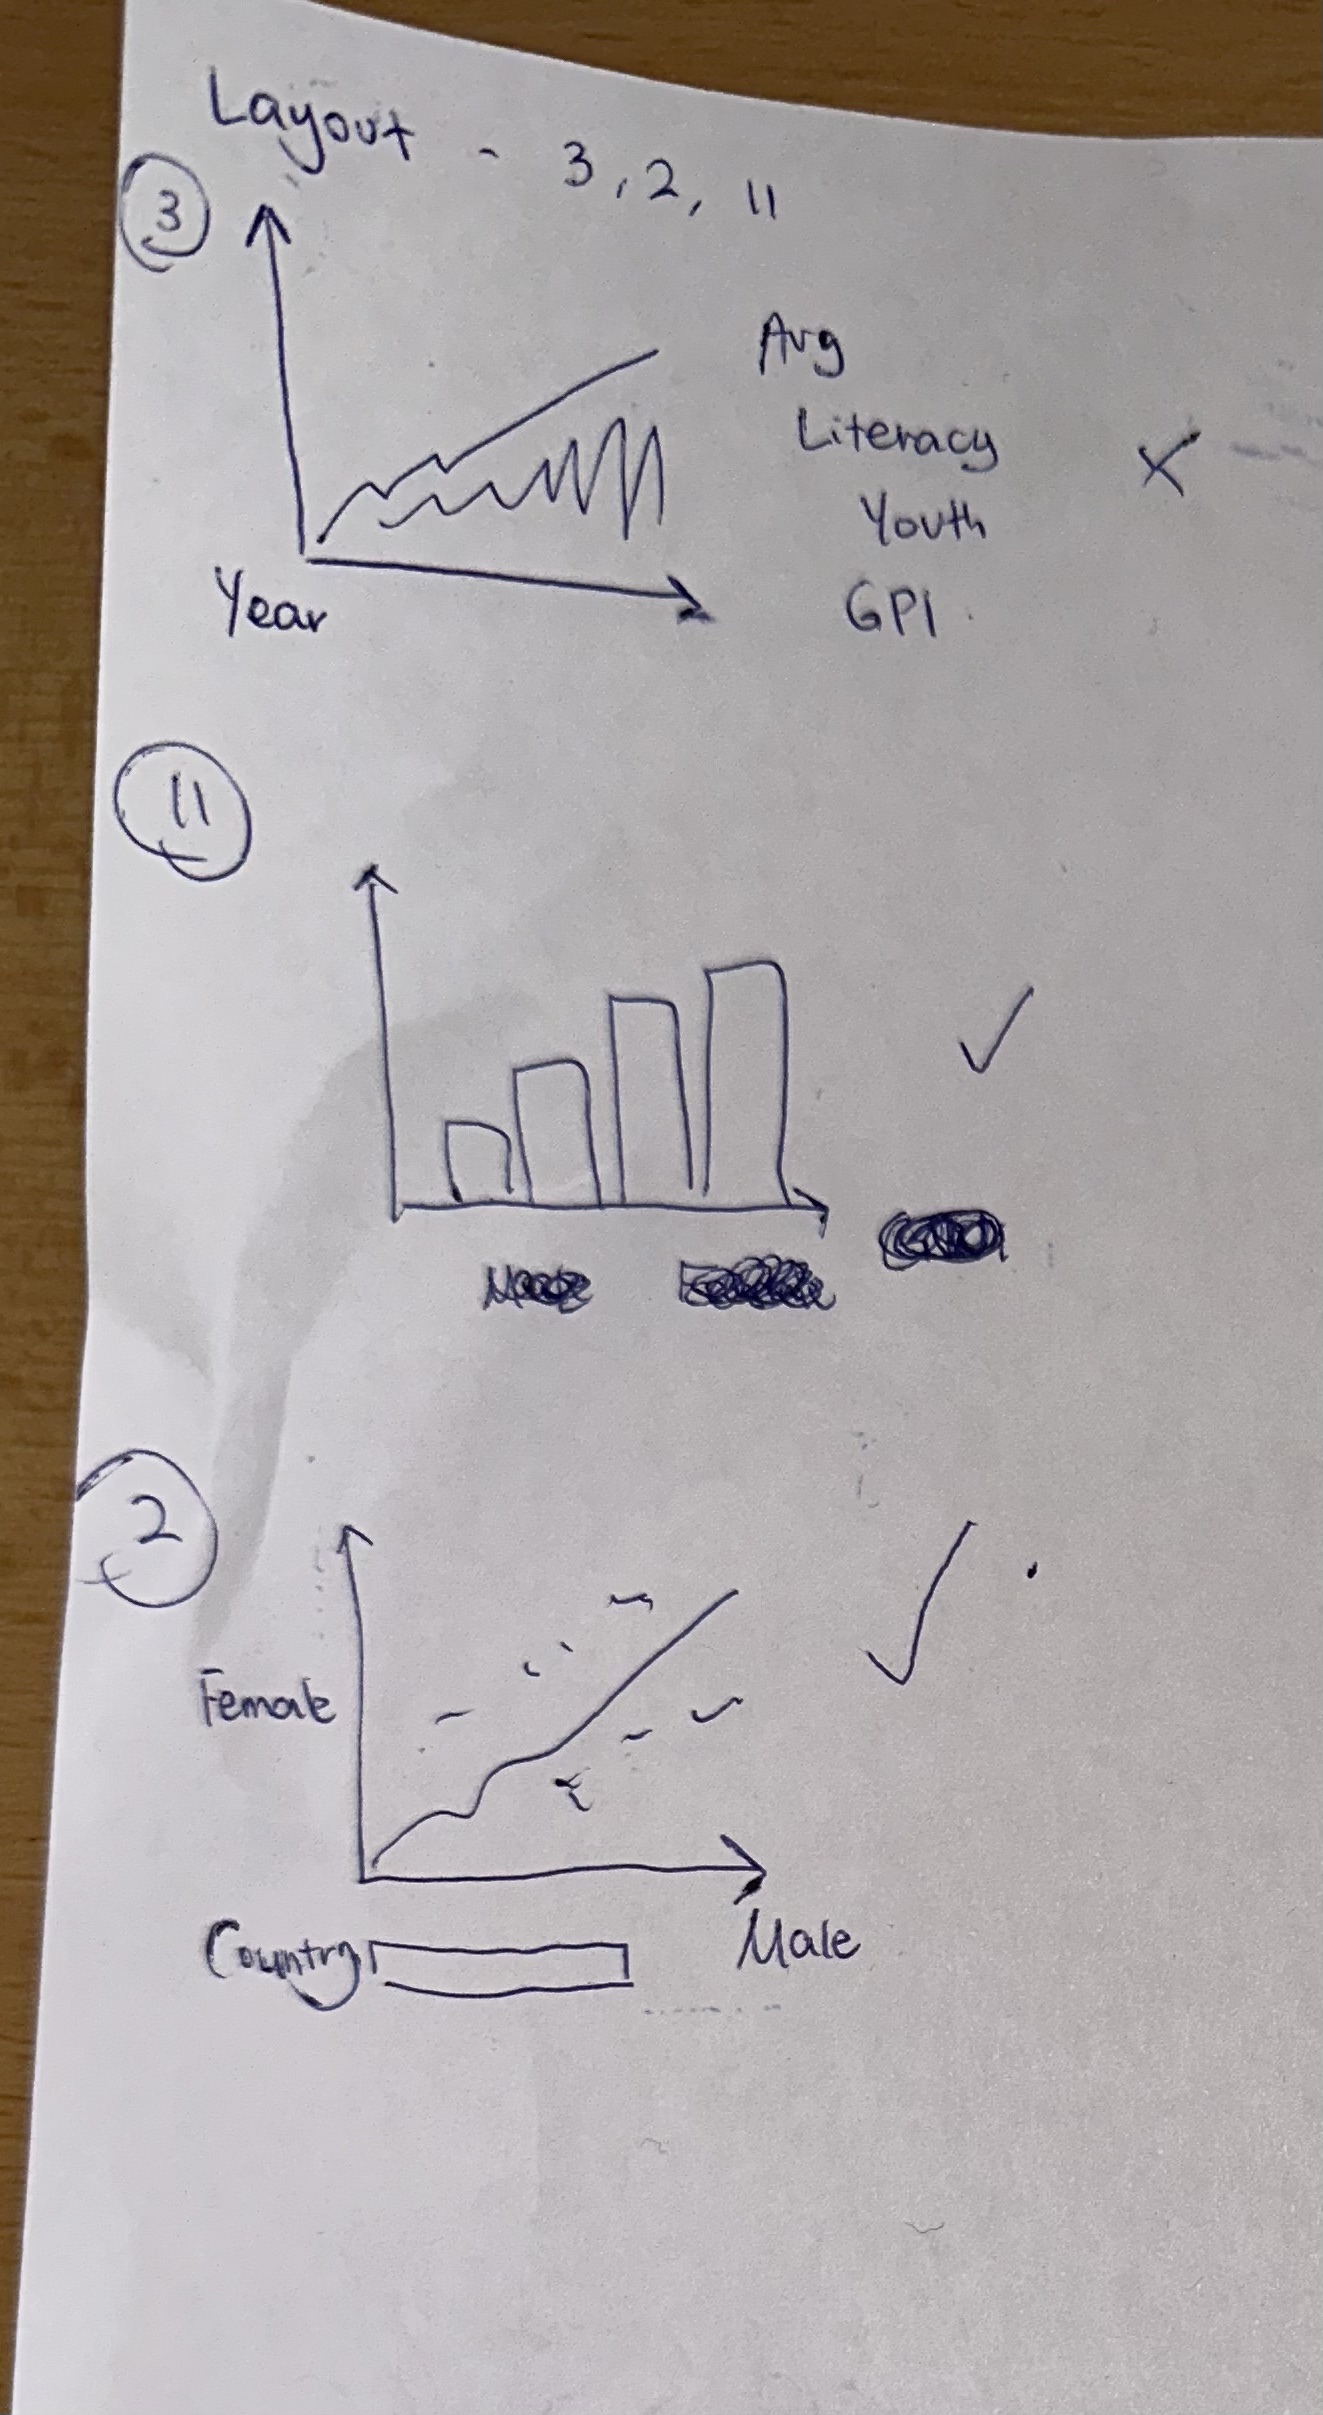 Layout - 3, 2, 11
3
Avg
Literacy
Youth
GPI
Year
11
2
Female
Country
Male